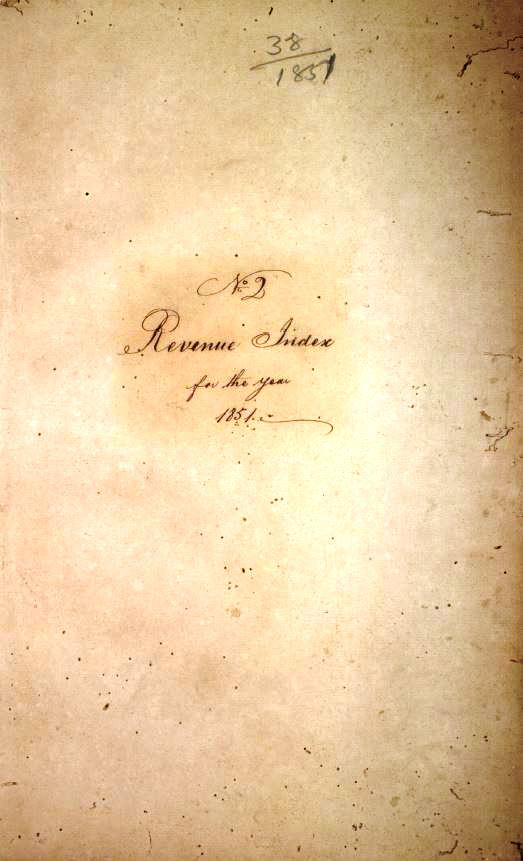 38
1851
No 2
Revenue Index
for the year
1851.